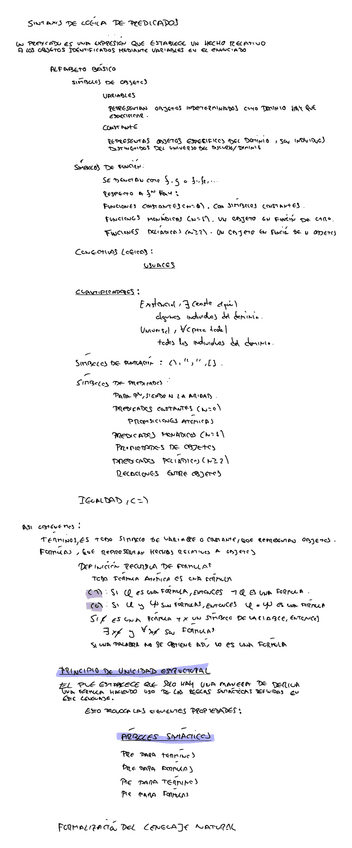 SINTAXIS DE LÓGICA DE PREDICADOS
UN PREDICADO ES UNA EXPRESIÓN QUE ESTABLECE UN HECHO RELATIVO
A LOS OBJETOS IDENTIFICADOS MEDIANTE VARIABLES EN EL ENUNCIADO
ALFABETO BÁSICO
SÍMBOLOS DE OBJETOS
VARIABLES
REPRESENTAN OBJETOS INDETERMINADOS CUYO DOMINIO HAY QUE
ESPECIFICAR.
CONSTANTE
REPRESENTAS OBJETOS ESPECÍFICOS DEL DOMINIO, SON INDIVIDUOS
DISTINGUIDOS DEL UNIVERSO DEL DISCURSO/DOMINIO
SÍMBOLOS DE FUNCIÓN.
SE DENOTAN COMO f, g
RESPECTO A
FUNCIONES CONSTANTES (N=0), CON SÍMBOLOS CONSTANTES.
FUNCIONES MONÁDICAS (N=1). UN OBJETO EN FUNCIÓN DE OTRO.
FUNCIONES POLIÁDICAS (N≥2). UN OBJETO EN FUNCIÓN DE N OBJETOS
CONECTIVAS LÓGICAS:
USUALES
CUANTIFICADORES:
Existencial, ∃ (existe algún)
algunos individuos del dominio.
Universal, ∀ (para todo)
todos los individuos del dominio.
SÍMBOLOS DE PUNTUACIÓN: (), ",", [].
SÍMBOLOS DE PREDICADOS:
PARA Pⁿ, SIENDO N LA ARIDAD.
PREDICADOS CONSTANTES (N=0)
PROPOSICIONES ATÓMICAS
PREDICADOS MONÁDICOS (N=1)
PROPIEDADES DE OBJETOS
PREDICADOS POLIÁDICOS (N≥2)
RELACIONES ENTRE OBJETOS
IGUALDAD, (=)
ASÍ OBTENEMOS:
TÉRMINOS, ES TODO SÍMBOLO DE VARIABLE O CONSTANTE, QUE REPRESENTAN OBJETOS.
FÓRMULAS, QUE REPRESENTAN HECHOS RELATIVOS A OBJETOS
DEFINICIÓN RECURSIVA DE FÓRMULAS
TODA FÓRMULA ATÓMICA ES UNA FÓRMULA
(¬): SI φ ES UNA FÓRMULA, ENTONCES ¬φ ES UNA FÓRMULA.
SI φ Y ψ SON FÓRMULAS, ENTONCES φ ψ ES UNA FÓRMULA
SI ES UNA FÓRMULA Y X UN SÍMBOLO DE VARIABLE, ENTONCES
∃x Y ∀x SON FÓRMULAS
SI UNA PALABRA NO SE OBTIENE ASÍ LO ES UNA FÓRMULA
PRINCIPIO DE UNICIDAD ESTRUCTURAL
EL PUE ESTABLECE QUE SÓLO HAY UNA MANERA DE DERIVAR
UNA FÓRMULA HACIENDO USO DE LAS REGLAS SINTÁCTICAS DEFINIDAS EN
ESTE LENGUAJE.
ESTO LAS SIGUIENTES PROPIEDADES:
ÁRBOLES SINTÁCTICOS
PRE PARA TÉRMINOS
PRE PARA FÓRMULAS
PIE PARA TÉRMINOS
PIE PARA FÓRMULAS
FORMALIZACIÓN DEL LENGUAJE NATURAL